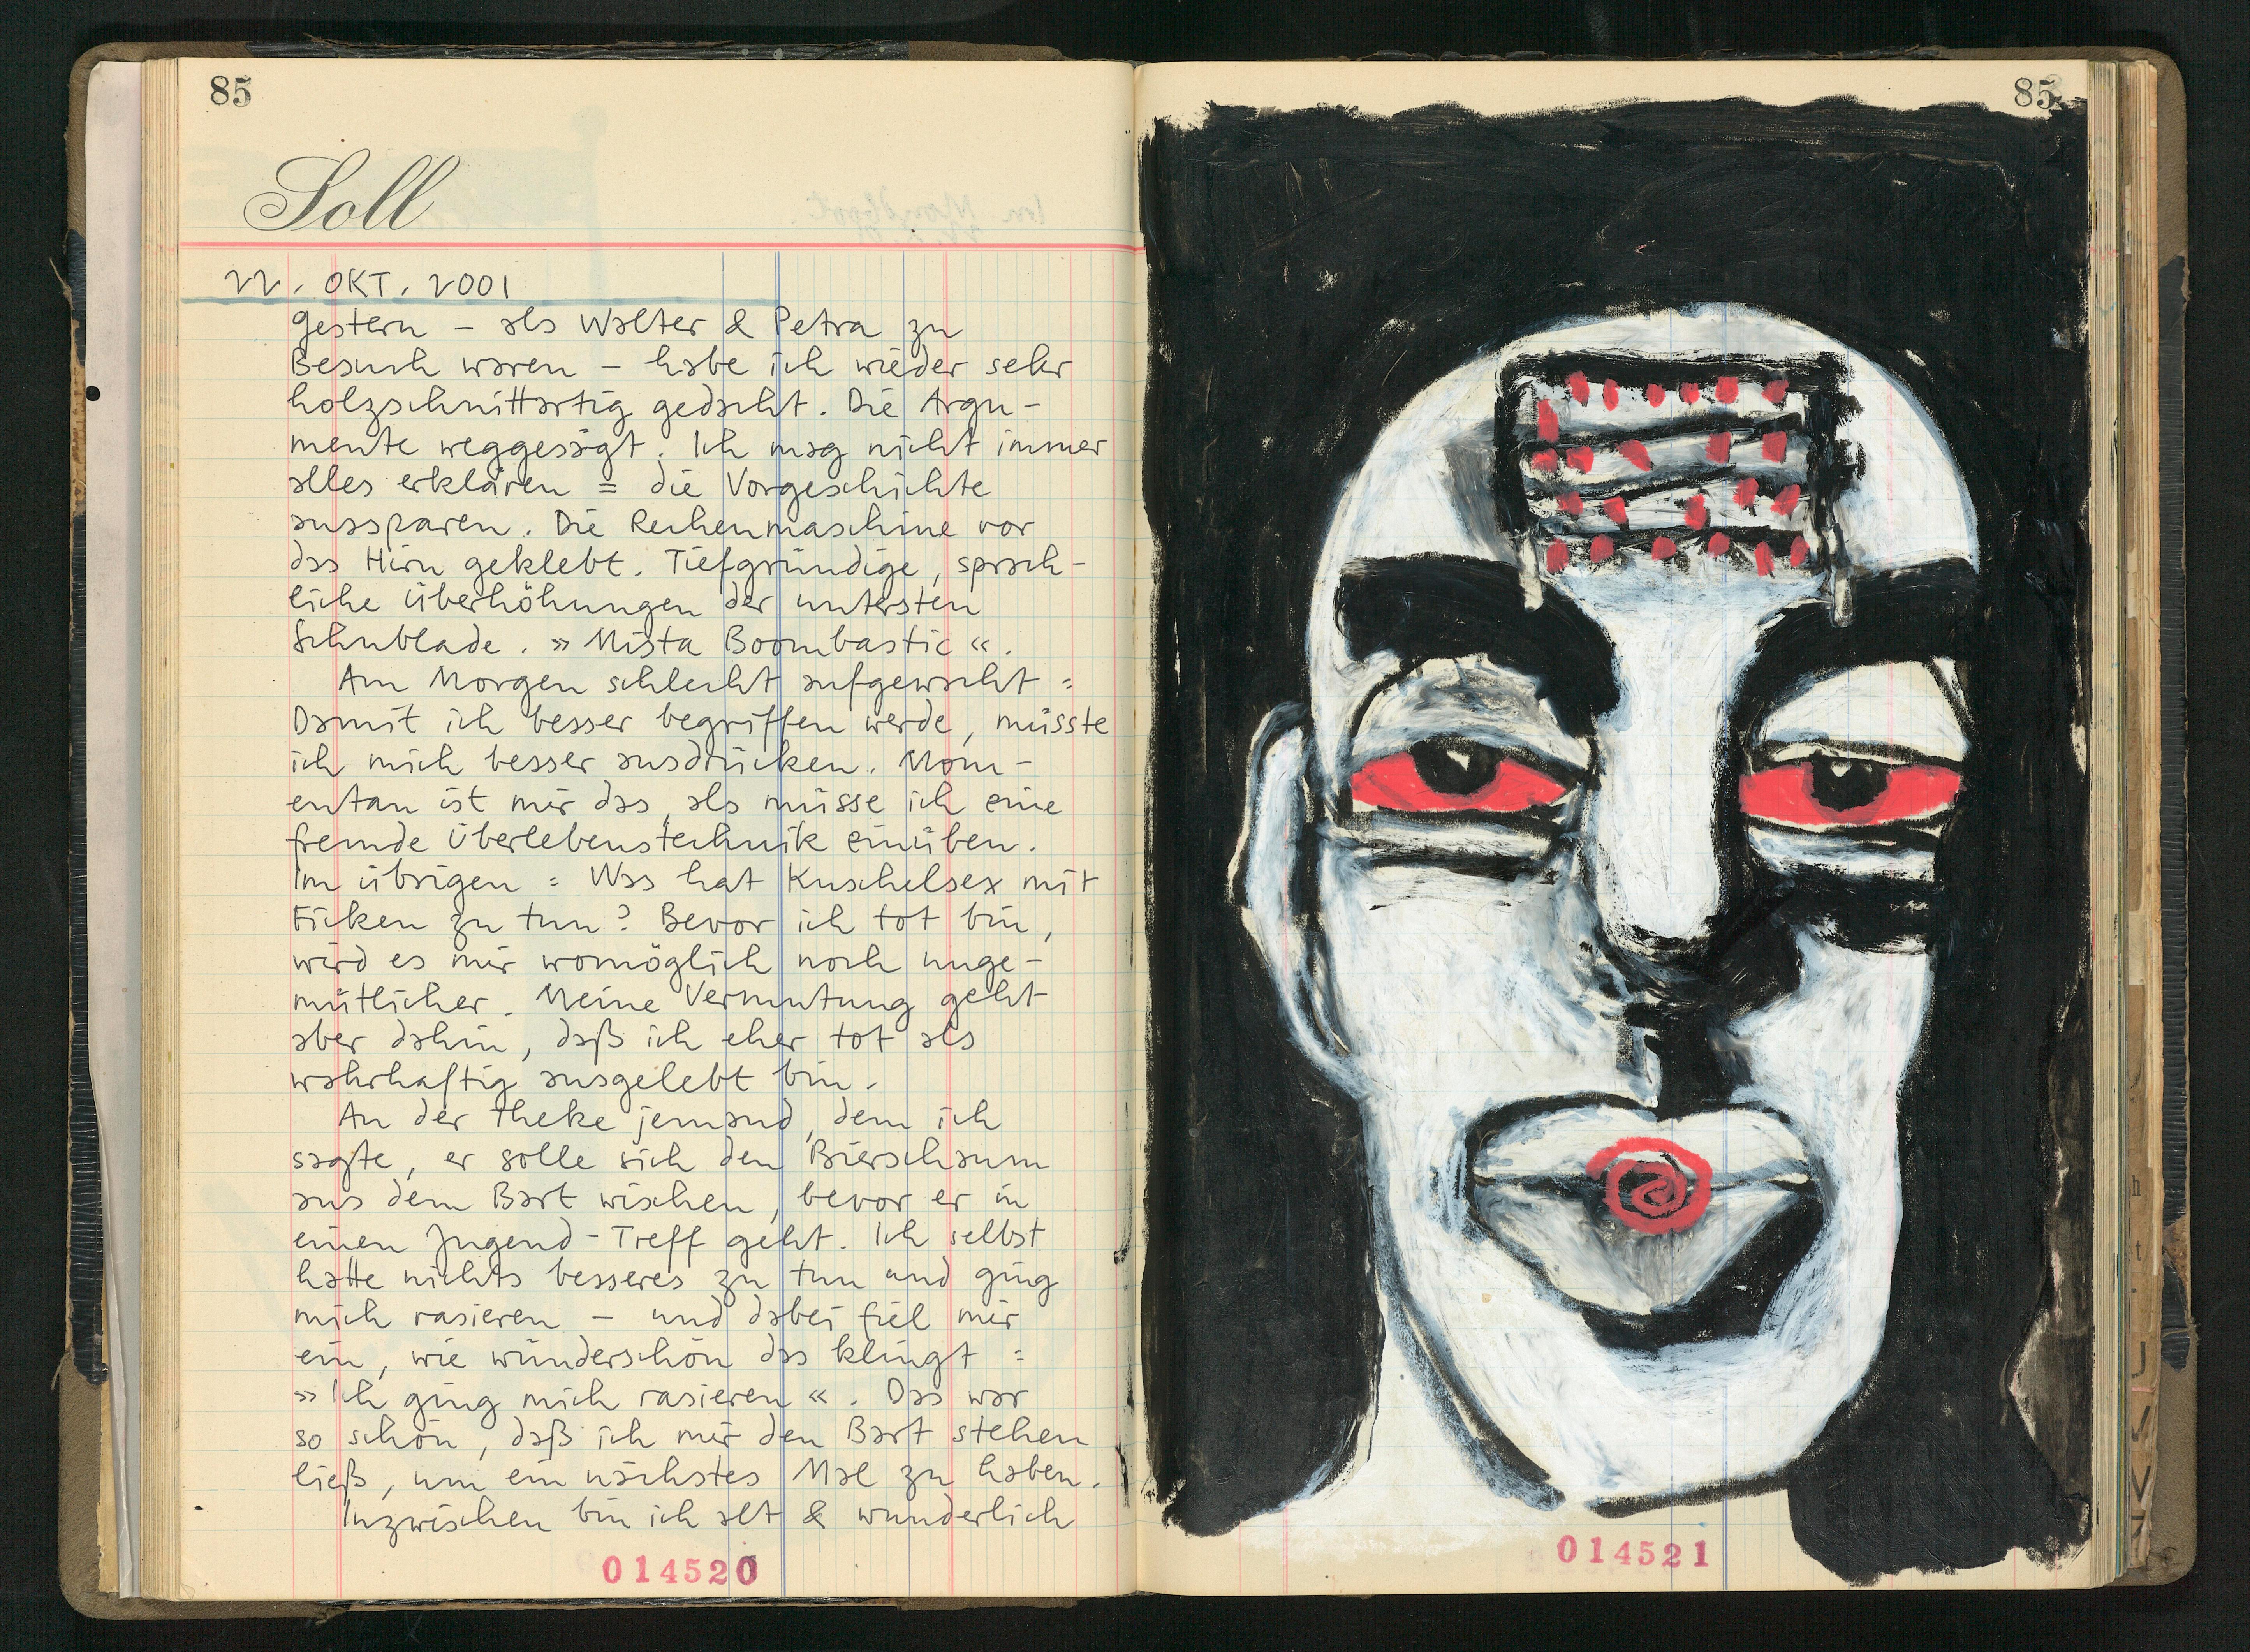 85
Soll
22. OKT. 2001
gestern – als Walter & Petra zu
Besuch waren – habe ich wieder sehr
holzschnittartig gedacht. Die Argu-
mente weggesägt. Ich mag nicht immer
alles erklären = die Vorgeschichte
aussparen. Die Rechenmaschine vor
das Hirn geklebt. Tiefgründige, sprach-
liche Überhöhungen der untersten
Schublade. » Mista Boombastic «.
Am Morgen schlecht aufgewacht =
Damit ich besser begriffen werde, müsste
ich mich besser ausdrücken. Mom-
entan ist mir das, als müsse ich eine
fremde Überlebenstechnik einüben.
Im übrigen = Was hat Kuschelsex mit
Ficken zu tun? Bevor ich tot bin,
wird es mir womöglich noch unge-
mütlicher. Meine Vermutung geht
aber dahin, daß ich eher tot als
wahrhaftig ausgelebt bin.
An der Theke jemand, dem ich
sagte, er solle sich den Bierschaum
aus dem Bart wischen, bevor er in
einen Jugend-Treff geht. Ich selbst
hatte nichts besseres zu tun und ging
mich rasieren – und dabei fiel mir
ein, wie wunderschön das klingt =
» Ich ging mich rasieren «. Das war
so schön, daß ich mir den Bart stehen
ließ, um ein nächstes Mal zu haben.
Inzwischen bin ich alt & wunderlich
014520
85
014521